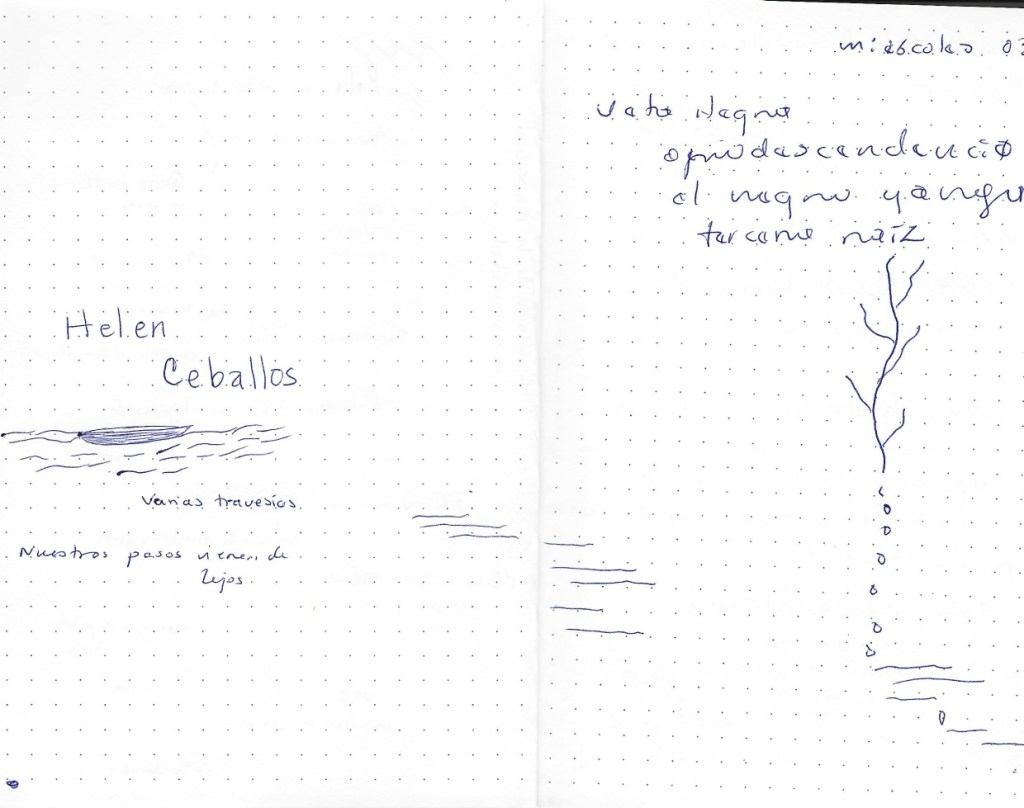 Helen
Ceballos
Varias travesías
Nuestros pasos vienen de
lejos.
miércoles 03
Negro
afrodescendenció
el negro
tercera raíz